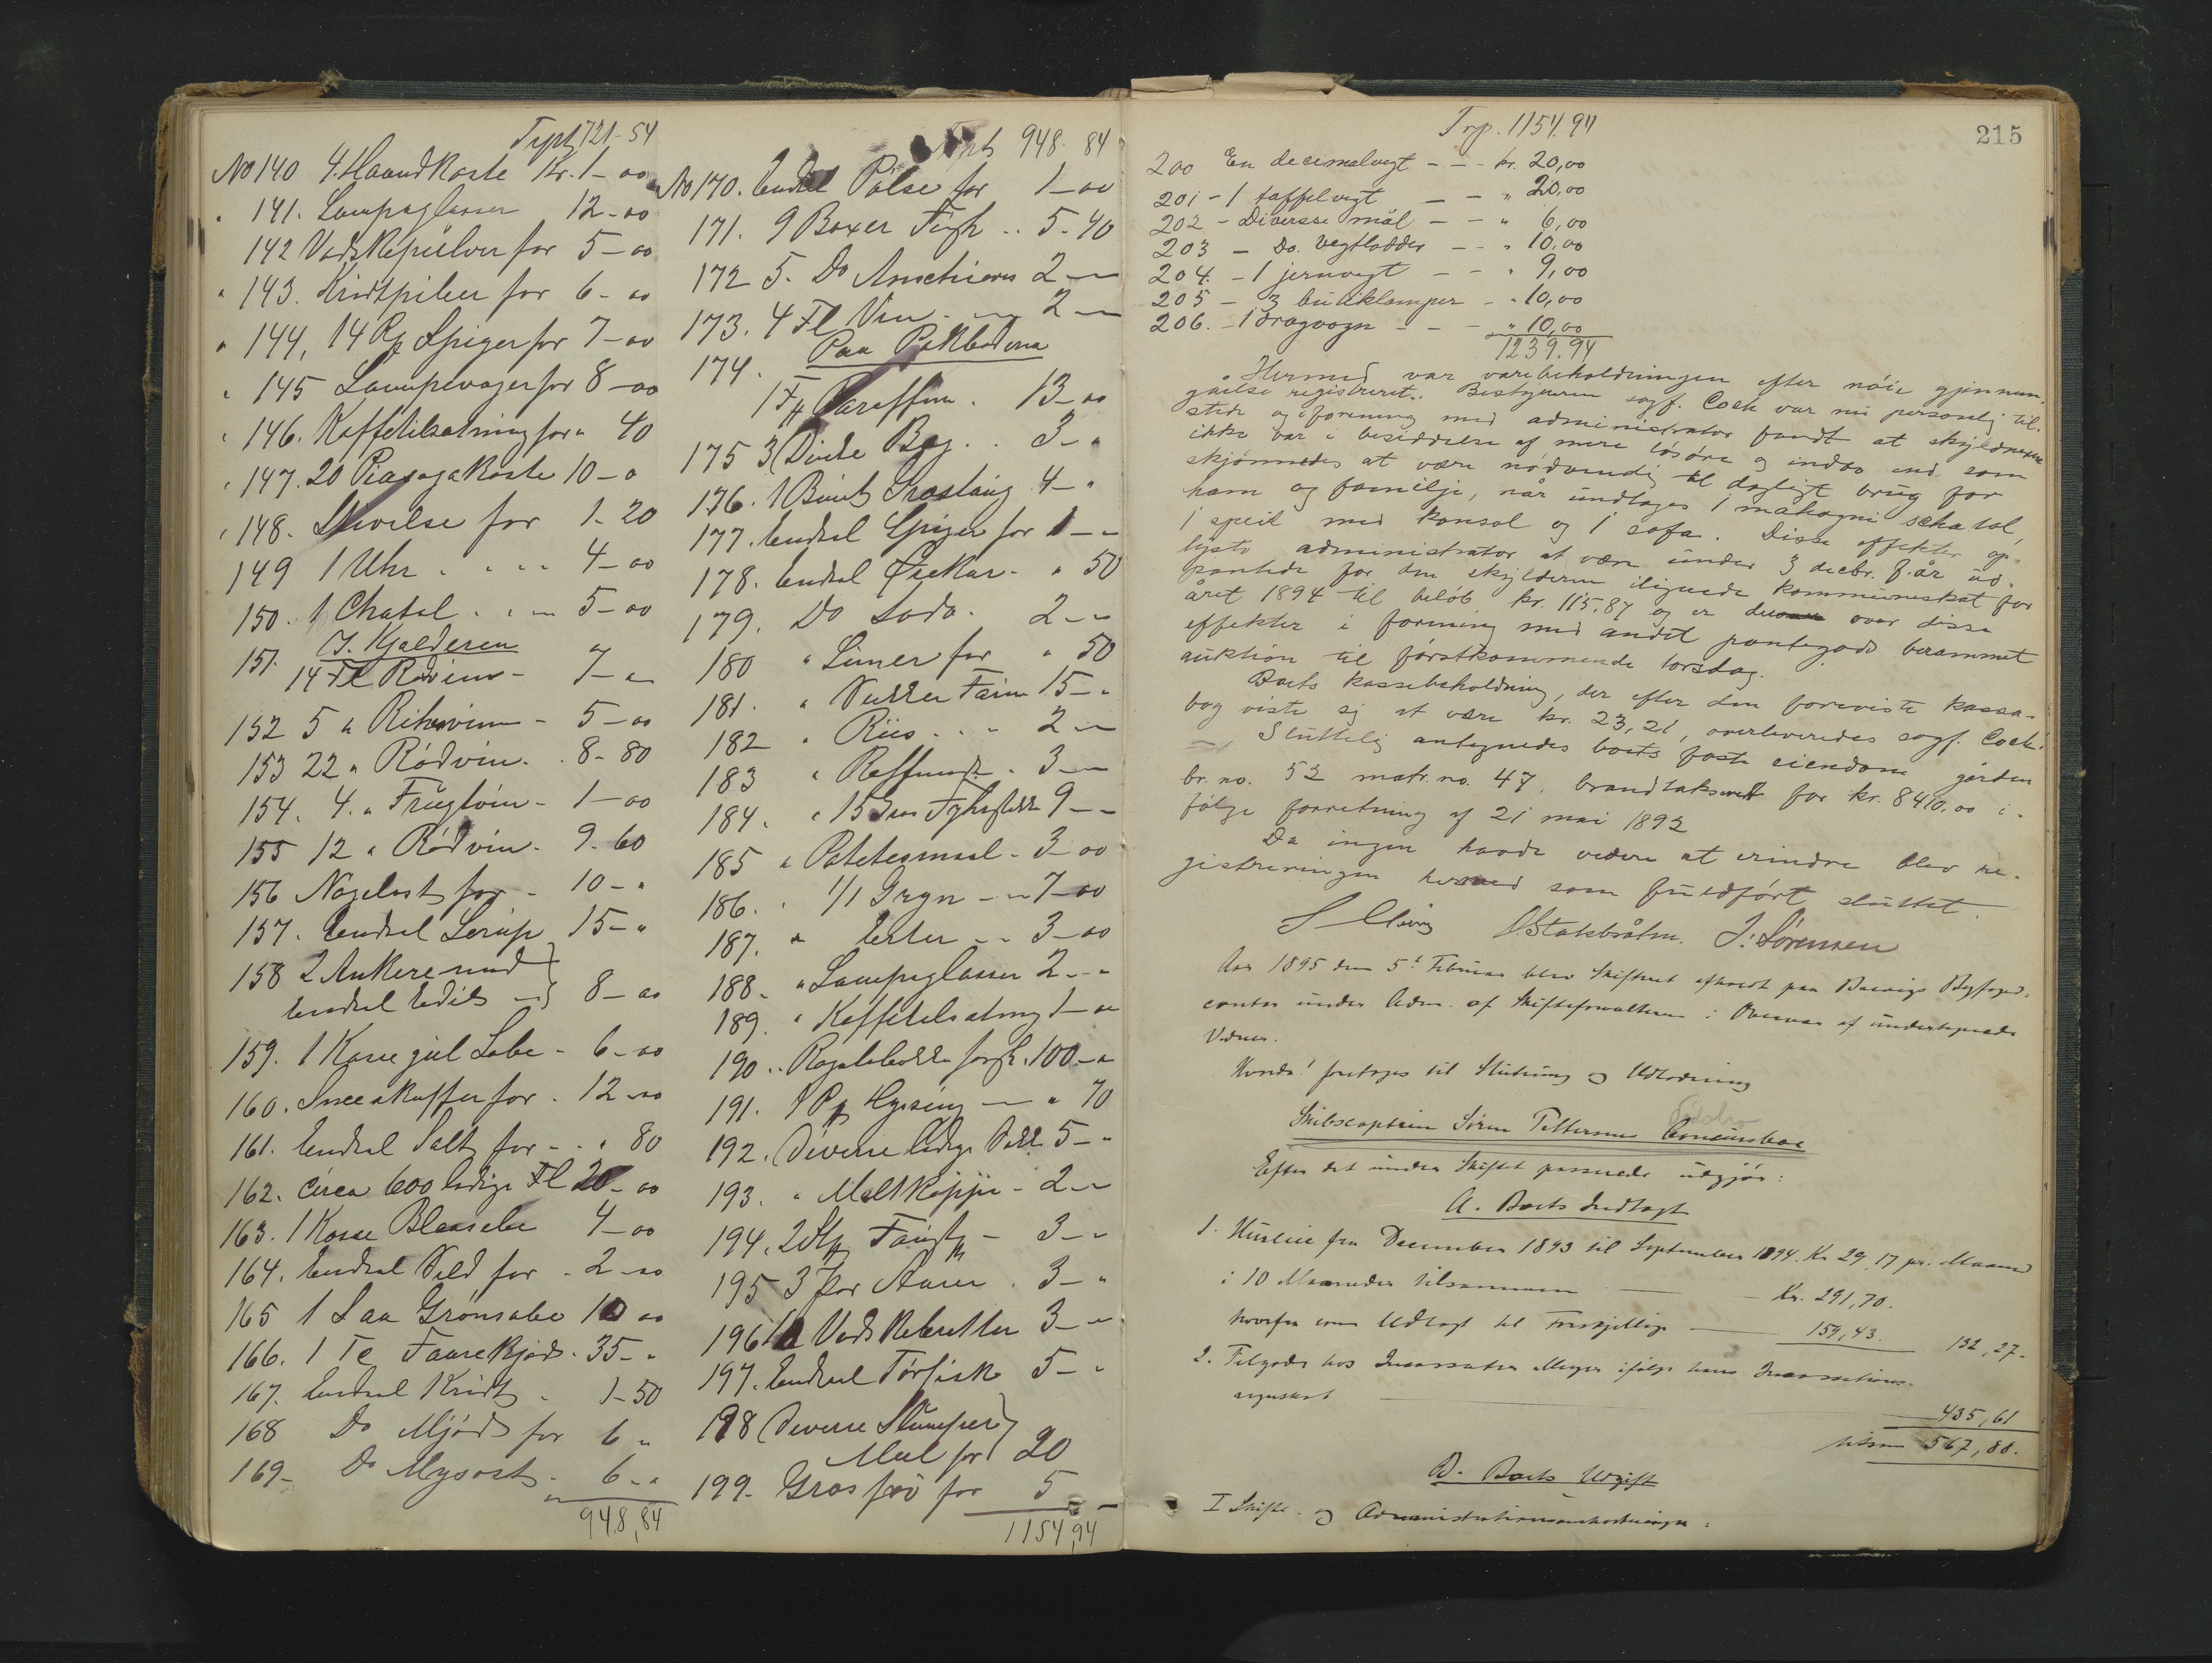 Trpt 721-54
No 140 4 Haandkoste Kr. 1-00
" 141. Lampeglasser 12-00
142 Vadskepulver for 5-00
" 143. Kridtpiber for 6-00
" 144, 14 Rp Spiger for 7-00
" 145 Lampevæger for 8-00
" 146. Kaffetilsatning for " 40
" 147. 20 Piasava Koste 10-0
" 148. Stivelse for 1-20
149 1 Uhr . . . . 4-00
150. 1 Chatol . . - 5-00
I. Kjelderen
151. 14 Fl Rødvin - 7-"
152 5 " Rihnvin - 5-00
153 22 " Rødvin . 8-80
154. 4. " Frugtvin - 1-00
155 12 " Rødvin - 9-60
156 Nøgelost for - 10-"
157. Endel Sirup 15-"
158 2 Ankere med }
Endel Edik - } 8-00
159. 1 Kasse gul Sæbe - 6-00
160. Sneeskuffer for . 12-00
161. Endel Salt for - . " 80
162. circa 600 ledige Fl 20-00
163. 1 Kasse Blaasæbe 4-00
164. Endel Sild for - 2-00
165 1 Saa Grønsæbe 10 00
166. 1 Te Faarekjød . 35-"
167. Endel Kridt - 1-50
168 Do Mjød for 6 "
169- Do Mysost - 6-"
948,84
Trpt 948. 84
No 170. Endel Pølse for 1-00
171. 9 Boxer Fisk .. 5-40
172 5. Do Anschiovis 2--
173. 4 Fl Vin - - 2-
174. Paa Pakboderne
1 Fu Paraffin . 13-00
175 3 Dirke Beg . . 3-"
176. 1 Bundt 4-"
177. Endel Spiger for 1--
178. Endel " 50
179. Do Soda - 2--
180 " Limer for " 50
181. " Sukker Farin 15-"
182 " Riis . . - 2--
183 " . 3--
184. " 15 9--
185 " Potetesmeel - 3-00
186. " 1/1 Gryn - - 7-00
187. " Erter - - 3-00
188. " Lampeglasser 2--
189. " Kaffetilsatning 1-00
190. 100-"
191. 1 Pp Hysing - " 70
192. Diverse ledige 5-"
193. " 2--
194. 2 3--
195 3 Par Aarer . 3-"
196 Vadskebretter 3--
197. Endel Tørfisk 5-"
198 Diverse Slumper }
Mel for } 20
199. Græsfrø for 5
1154,94
215
Trp. 1154.94
200 En decimalvegt - - - kr. 20,00
201 - 1 taffelvegt - - " 20,00
202 - Diverse mål - - " 6,00
203 - Do. Vegtlodder - - " 10,00
204. - 1 jernvegt - - " 9,00
205 - 3 butiklamper - " 10,00
206. - 1 dragvogn - - - " 10,00
1239.94
Hermed var varebeholdningen efter nöie gjennem-
gåelse registreret. Bestyreren sagf. Cock var nu personlig til-
stede og i forening med administrator fandt at skyldneren
ikke var i besiddelse af mere lösöre og indbo end som
skjönnedes at være nödvendig til dagligt brug for
ham og familje, når undtages 1 mahogni schatol,
1 speil med konsol og 1 sofa. Disse effekter op-
lyste administrator at være under 3 decbr. f. år ud-
pantede for den skylderen ilignede kommuneskat for
året 1894 til belöb kr. 115,87 og er over disse
effekter i forening med andet pantegods berammet
auktion til förstkommende torsdag.
Boets kassebeholdning, der efter den foreviste kassa-
bog viste sig at være kr. 23,21, overleveredes sagf. Cock.
Sluttelig antegnedes boets faste eiendom gården
br. no. 52 matr. no. 47, brandtakseret for kr. 8410.00 i-
følge forretning af 21 mai 1892
Da ingen havde videre at erindre blev re-
gistreringen hermed som fuldfört sluttet.
J. Sørensen
Aar 1895 den 5te Februar blev Skifteret afholdt paa Brevigs Byfoged-
contor under Adm. af Skifteforvalteren i Overvær af undertegnede
Vidner.
Hvorda! foretoges til Slutning og Udlodning
Skibscaptein Søren Pettersens Concursbo
Efter det under Skiftet passerede udgjør:
A. Boets Indtægt
1. Husleie fra December 1893 til September 1894. Kr 29,17 pr. Maaned
i 10 Maaneder tilsammen - Kr. 291,70.
hvorfra som Udlagt til Forskjellige - 159,43. 132,27.
2. Tilgode hos Incassator Meyer ifølge hans Incassations-
regnskab
435,61
tilsam 567,88.
B. Boets Udgift
I Skifte- og Administrationsomkostninger: